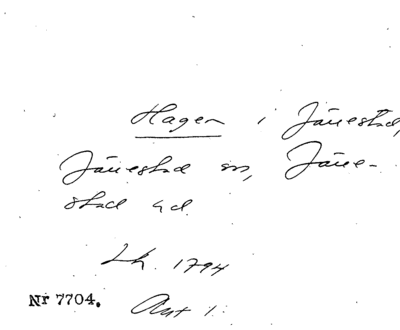 Hagen i Järrestad,
Järrestad sn, Järre-
stad hd
Lk. 1794
Nr 7704. Akt 1.